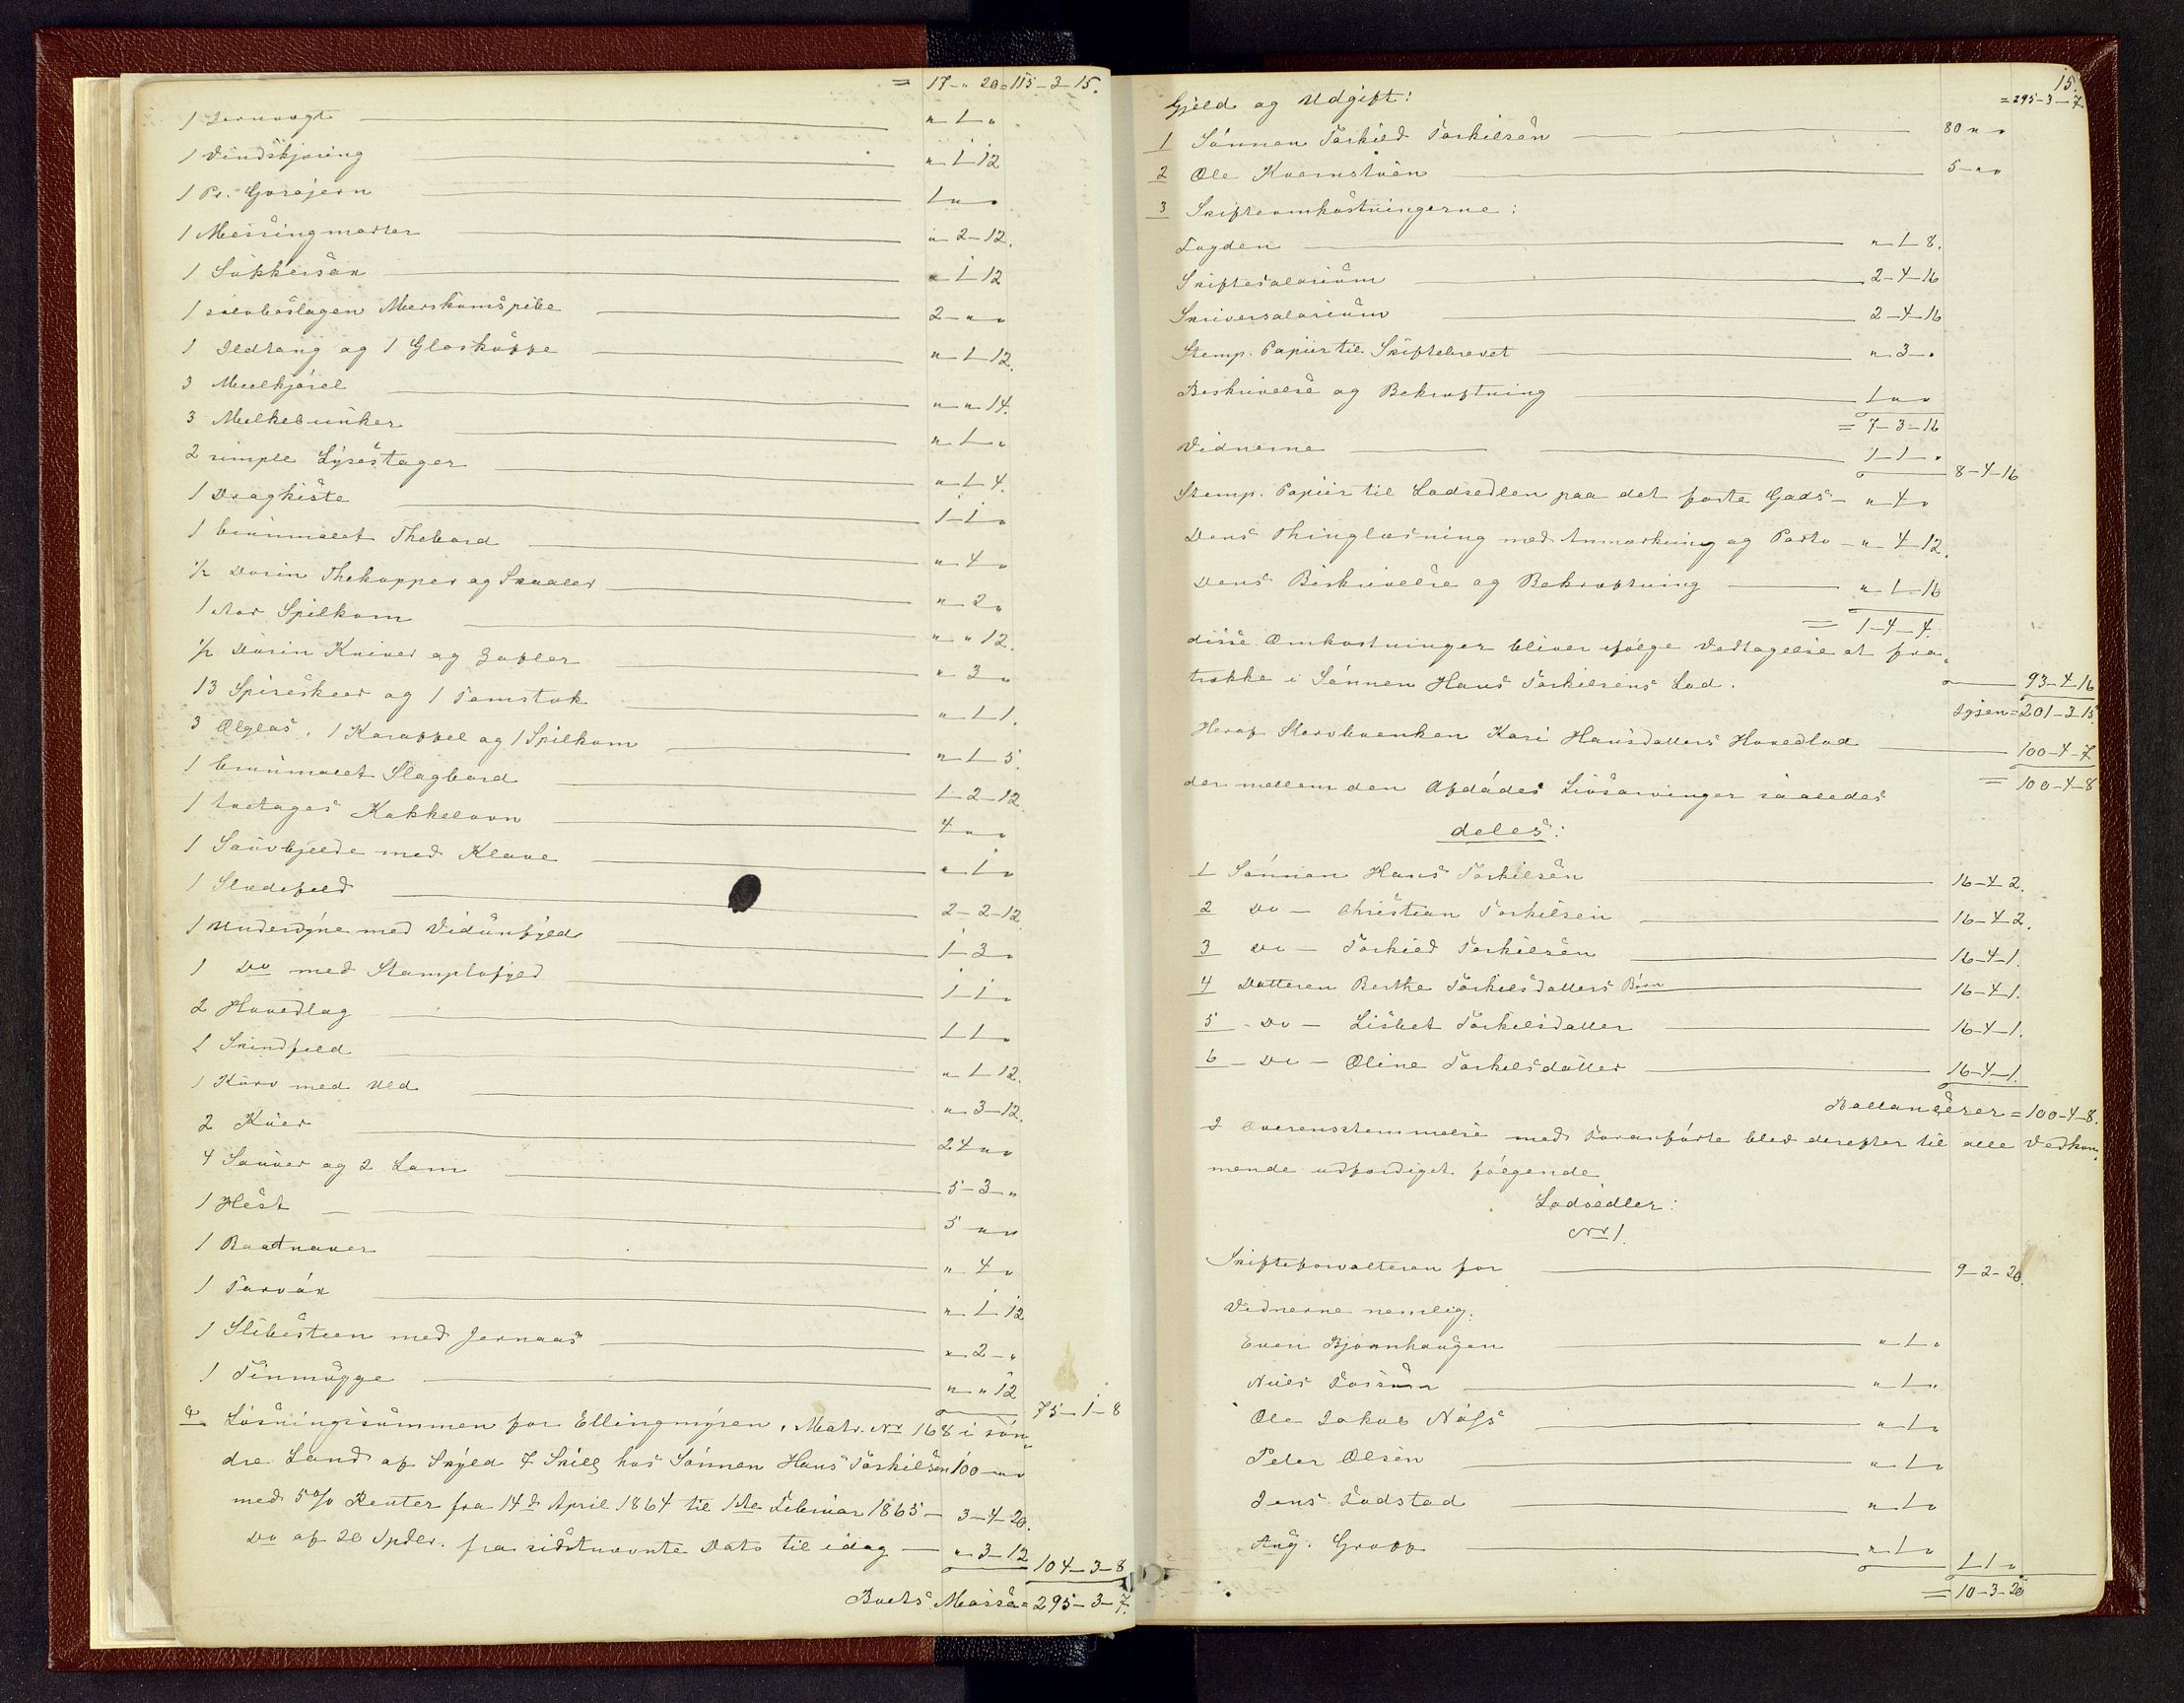 = 17 - " 20 = 115 - 3 - 15.
1 Jernvogt " 1 "
1 Vindskjæring " 1 12
1 Pr. Gorojern 1 " "
1 Messingmorter " 2 - 12.
1 Sukkersax " 1 12
1 sølvbeslagen Merskumspibe 2 - " "
1 Ildtang og 1 Gloskuppe " 1 12.
3 Meelkjørel " " 14.
3 Melkebunker " 1 "
2 simple Lysestager " 1 4.
1 Dragkiste 1 - 1 "
1 brunmalet Thebord " 4 "
1/2 Dusin Thekopper og Skaaler " 2 "
1 stor Spilkom " " 12.
1/2 Dusin Knive og Gafler " 3 "
13 Spiseskeer og 1 Tomstok " 1 1.
3 Ølglas, 1 Karaffel og 1 Spilkom " 1 5.
1 brunmalet Slagbord 1 - 2 - 12.
1 toetages Kakkelovn 4 " "
1 Saubjelde med Klave " 1 "
1 Sladefeld 2 - 2 - 12
1 Underdyne med Viduunfyld 1 - 3 "
1 Do med Stamplofyld 1 - 1 "
2 Hovedlag 1 1 "
1 Skindfeld " 1 12.
1 Kurv med Uld " 3 - 12.
2 Kuer 24 " "
4 Sauer og 2 Lam 5 - 3 "
1 Hest 5 " "
1 Baatnaver " 4 "
1 Tarvøx " 1 12
1 Slibesteen med Jernaas " 2 - "
1 Tinmugge " " 12
75 - 1 - 8
Løsningssummen for Ellingmyren, Matr. Nr 168 i søn-
dre Land af Skyld 7 Skill hos Sønnen Hans Torkilsen 100 " "
med 5 % Renter fra 14de April 1864 til 1ste Februar 1865 - 3 - 4 - 20.
Do af 20 Spdlr. fra sidstnævnte Dato til idag " 3 - 12 104 - 3 - 8
Boets Massa = 295 - 3 - 7.
15.
Gjeld og Udgift: = 295 - 3 - 7
1 Sønnen Torkild Torkilsen 80 " "
2 Ole Kvernstuen 5 - " "
3 Skifteomkostningerne:
Fogden " 1 8.
Skiftesalarium 2 - 4 - 16
Skriversalarium 2 - 4 - 16
Stemp. Papiir til Skiftebrevet " 3 - "
Beskrivelse og Bekræftning 1 " "
= 7 - 3 - 16
Vidnerne 1 - 1 - "
8 - 4 - 16
Stemp. Papiir til Lodsedlen paa det faste Gods - " 4 "
Dens Thinglæsning med Anmærkning og Porto - " 4 - 12.
Dens Beskrivelse og Bekræftning " 1 - 16
= 1 - 4 - 4.
disse Omkostninger bliver ifølge Vedtagelse at fra-
trække i Sønnen Hans Torkilsens Lod. 93 - 4 - 16
Igjen = 201 - 3 - 15.
Heraf Stervboenken Kari Hansdatters Hovedlod 100 - 4 - 7
= 100 - 4 - 8
der mellem den Afdødes Livsarvinger saaledes
deles:
1 Sønnen Hans Torkilsen 16 - 4 2.
2 Do - Christian Torkilsen 16 - 4 2.
3 Do - Torkild Torkilsen 16 - 4 - 1.
4 Datteren Berthe Torkilsdatters Børn 16 - 4 - 1.
5 - Do - Lisbet Torkelsdatter 16 - 4 - 1.
6 - Do - Oline Torkelsdatter 16 - 4 - 1.
Ballancerer = 100 - 4 - 8.
I Overensstemmelse med Foranførte blev derefter til alle Vedkom-
mende udfærdiget følgende
Lodsedler:
No 1.
Skifteforvalteren for 9 - 2 - 20.
Vidnerne nemlig:
Even Bjørnhaugen " 1 "
Niels " 1 "
Ole Jakob Næss " 1 "
Peter Olsen " 1 "
Jens Fodstad " 1 "
Aug. Gropp " 1 "
1 1 "
= 10 - 3 - 20